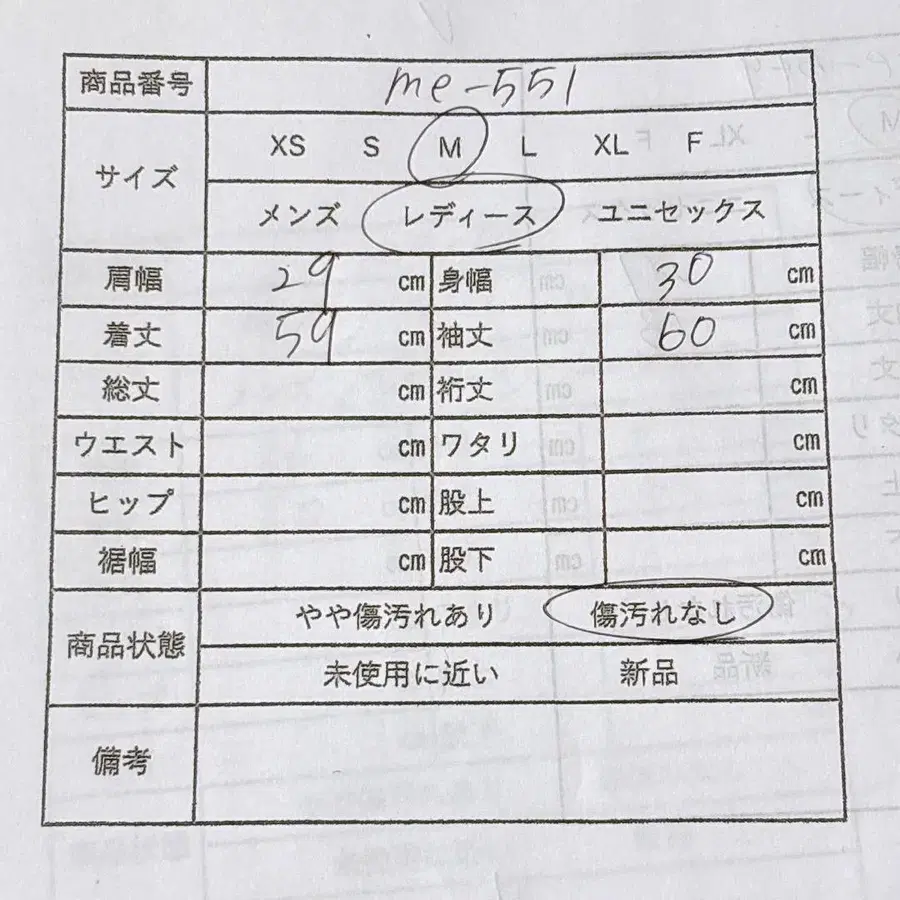 商品番号 me-551
サイズ XS S M L XL F
メンズ レディース ユニセックス
肩幅 29 cm 身幅 30 cm
着丈 59 cm 袖丈 60 cm
総丈 cm 裄丈 cm
ウエスト cm ワタリ cm
ヒップ cm 股上 cm
裾幅 cm 股下 cm
商品状態 やや傷汚れあり 傷汚れなし
未使用に近い 新品
備考